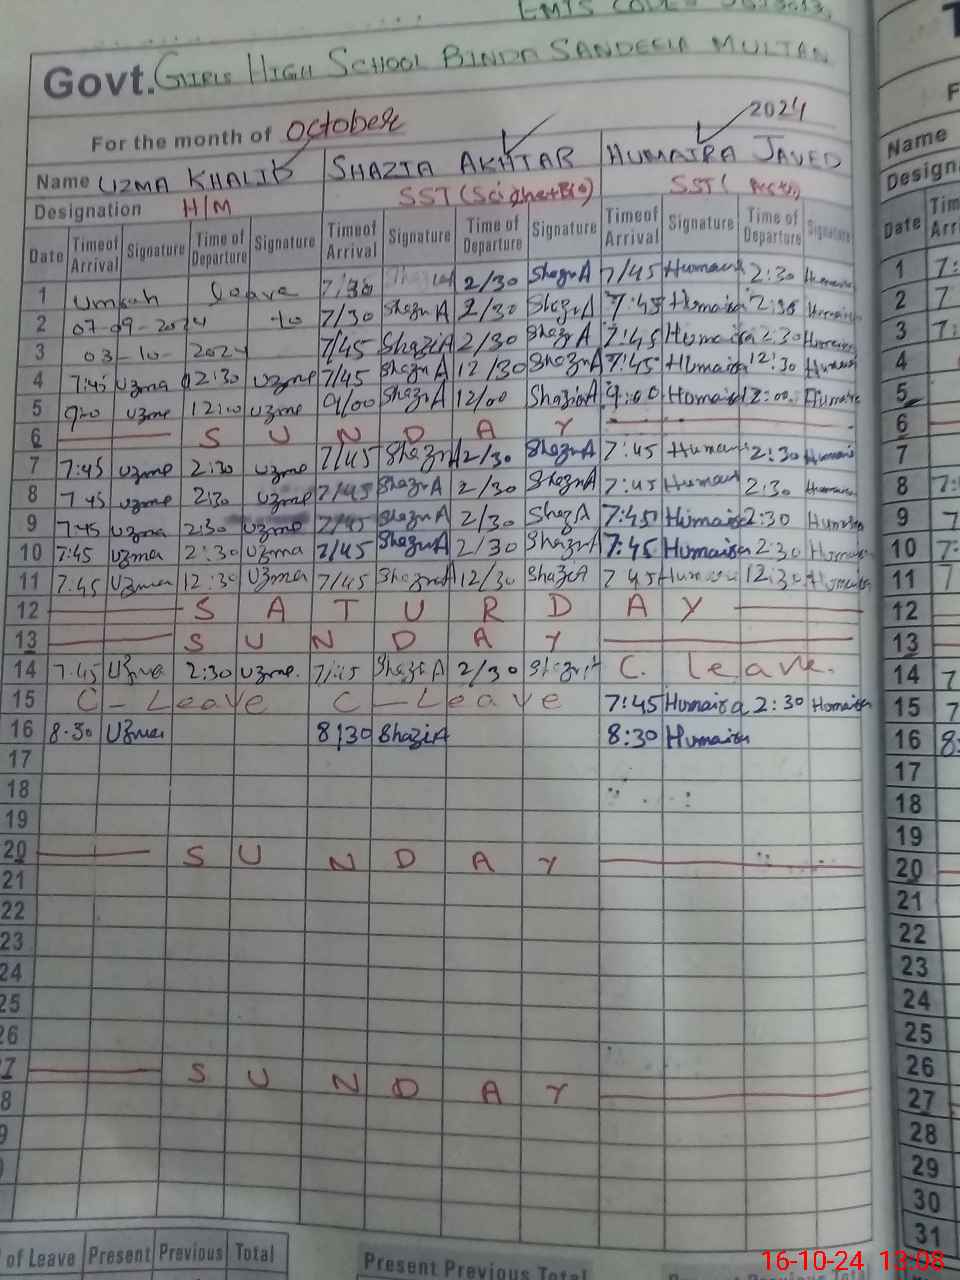 EMIS CODE
Govt. GIRLS HIGH SCHOOL BINDA SANDEELA MULTAN
For the month of October 2024
Name UZMA KHALIK SHAZIA AKHTAR HUMAIRA JAVED
Designation H/M SST (Science+Bio) SST (
Date Time of Arrival Signature Time of Departure Signature Time of Arrival Signature Time of Departure Signature Time of Arrival Signature Time of Departure Signature
1 Umrah leave 7/30 2/30 ShaziA 7/45 Humaira 2:30 Humaira
2 07-09-2024 to 7/30 ShaziA 2/30 ShaziA 7:45 Humaira 2:30 Humaira
3 03-10-2024 7/45 ShaziA 2/30 ShaziA 7:45 Humaira 2:30 Humaira
4 7:45 Uzma 12:30 Uzma 7/45 ShaziA 12/30 ShaziA 7:45 Humaira 12:30 Humaira
5 9:00 Uzma 12:00 Uzma 9/00 ShaziA 12/00 ShaziA 9:00 Humaira 12:00 Humaira
6 SUNDAY
7 7:45 Uzma 2:30 Uzma 7/45 ShaziA 2/30 ShaziA 7:45 Humaira 2:30 Humaira
8 7:45 Uzma 2:30 Uzma 7/45 ShaziA 2/30 ShaziA 7:45 Humaira 2:30 Humaira
9 7:45 Uzma 2:30 Uzma 7/45 ShaziA 2/30 ShaziA 7:45 Humaira 2:30 Humaira
10 7:45 Uzma 2:30 Uzma 7/45 ShaziA 2/30 ShaziA 7:45 Humaira 2:30 Humaira
11 7:45 Uzma 12:30 Uzma 7/45 ShaziA 12/30 ShaziA 7:45 Humaira 12:30 Humaira
12 SATURDAY
13 SUNDAY
14 7:45 Uzma 2:30 Uzma 7/45 ShaziA 2/30 ShaziA C. leave.
15 C-Leave C-Leave 7:45 Humaira 2:30 Humaira
16 8:30 Uzma 8/30 ShaziA 8:30 Humaira
17
18
19
20 SUNDAY
21
22
23
24
25
26
27 SUNDAY
8
9
of Leave Present Previous Total
Present Previous Total
Name
Design
Date Tim Arr
1 7:
2 7
3 7:
4
5
6
7
8 7:
9 7
10 7
11 7
12
13
14 7
15 7
16 8:
17
18
19
20
21
22
23
24
25
26
27
28
29
30
31
16-10-24 13:08